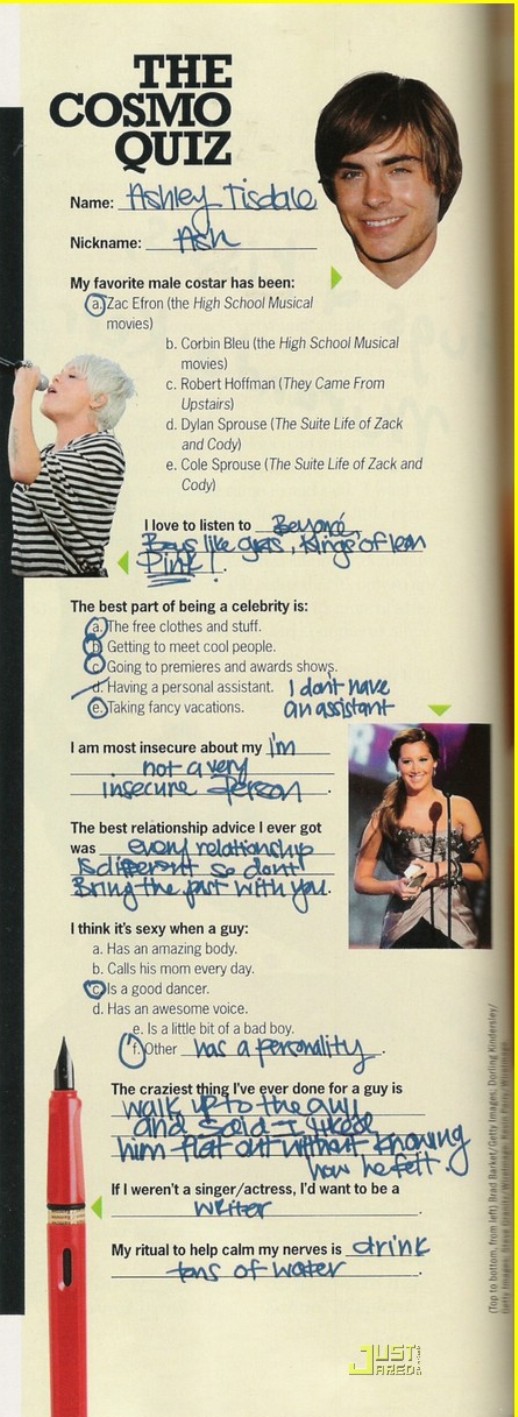 THE
COSMO
QUIZ
Name: Ashley Tisdale
Nickname: Ash
My favorite male costar has been:
a. Zac Efron (the High School Musical
movies)
b. Corbin Bleu (the High School Musical
movies)
c. Robert Hoffman (They Came From
Upstairs)
d. Dylan Sprouse (The Suite Life of Zack
and Cody)
e. Cole Sprouse (The Suite Life of Zack and
Cody)
I love to listen to Beyoncé,
Boys like girls, Kings of leon
Pink!.
The best part of being a celebrity is:
a. The free clothes and stuff.
b. Getting to meet cool people.
c. Going to premieres and awards shows.
d. Having a personal assistant. I dont have
an assistant
e. Taking fancy vacations.
I am most insecure about my I'm
not a very
insecure person.
The best relationship advice I ever got
was every relationship
is different so dont
Bring the past with you.
I think it's sexy when a guy:
a. Has an amazing body.
b. Calls his mom every day.
c. Is a good dancer.
d. Has an awesome voice.
e. Is a little bit of a bad boy.
f. Other has a personality.
The craziest thing I've ever done for a guy is
walk up to the guy
and said I liked
him flat out without knowing
how he felt.
If I weren't a singer/actress, I'd want to be a
writer.
My ritual to help calm my nerves is drink
tons of water.
(Top to bottom, from left) Brad Barket/Getty Images, Dorling Kindersley/
Getty Images, Steve Granitz/WireImage, Kevin Parry/WireImage
JUST
JARED